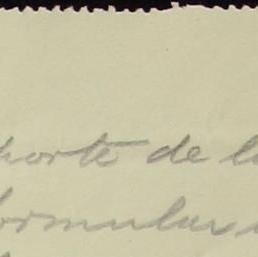 porte de la
formular